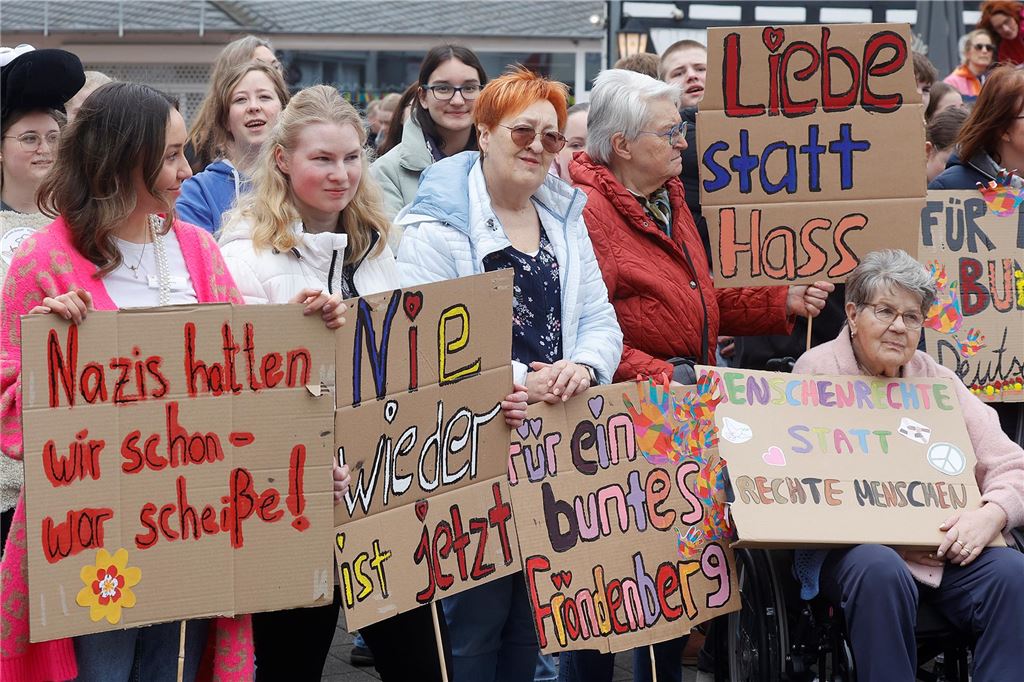 Nazis hatten
wir schon -
war scheiße!
Nie
wieder
ist jetzt
Für ein
buntes
Fröndenberg
Liebe
statt
Hass
MENSCHENRECHTE
STATT
RECHTE MENSCHEN
FÜR
BUN
Deutsc